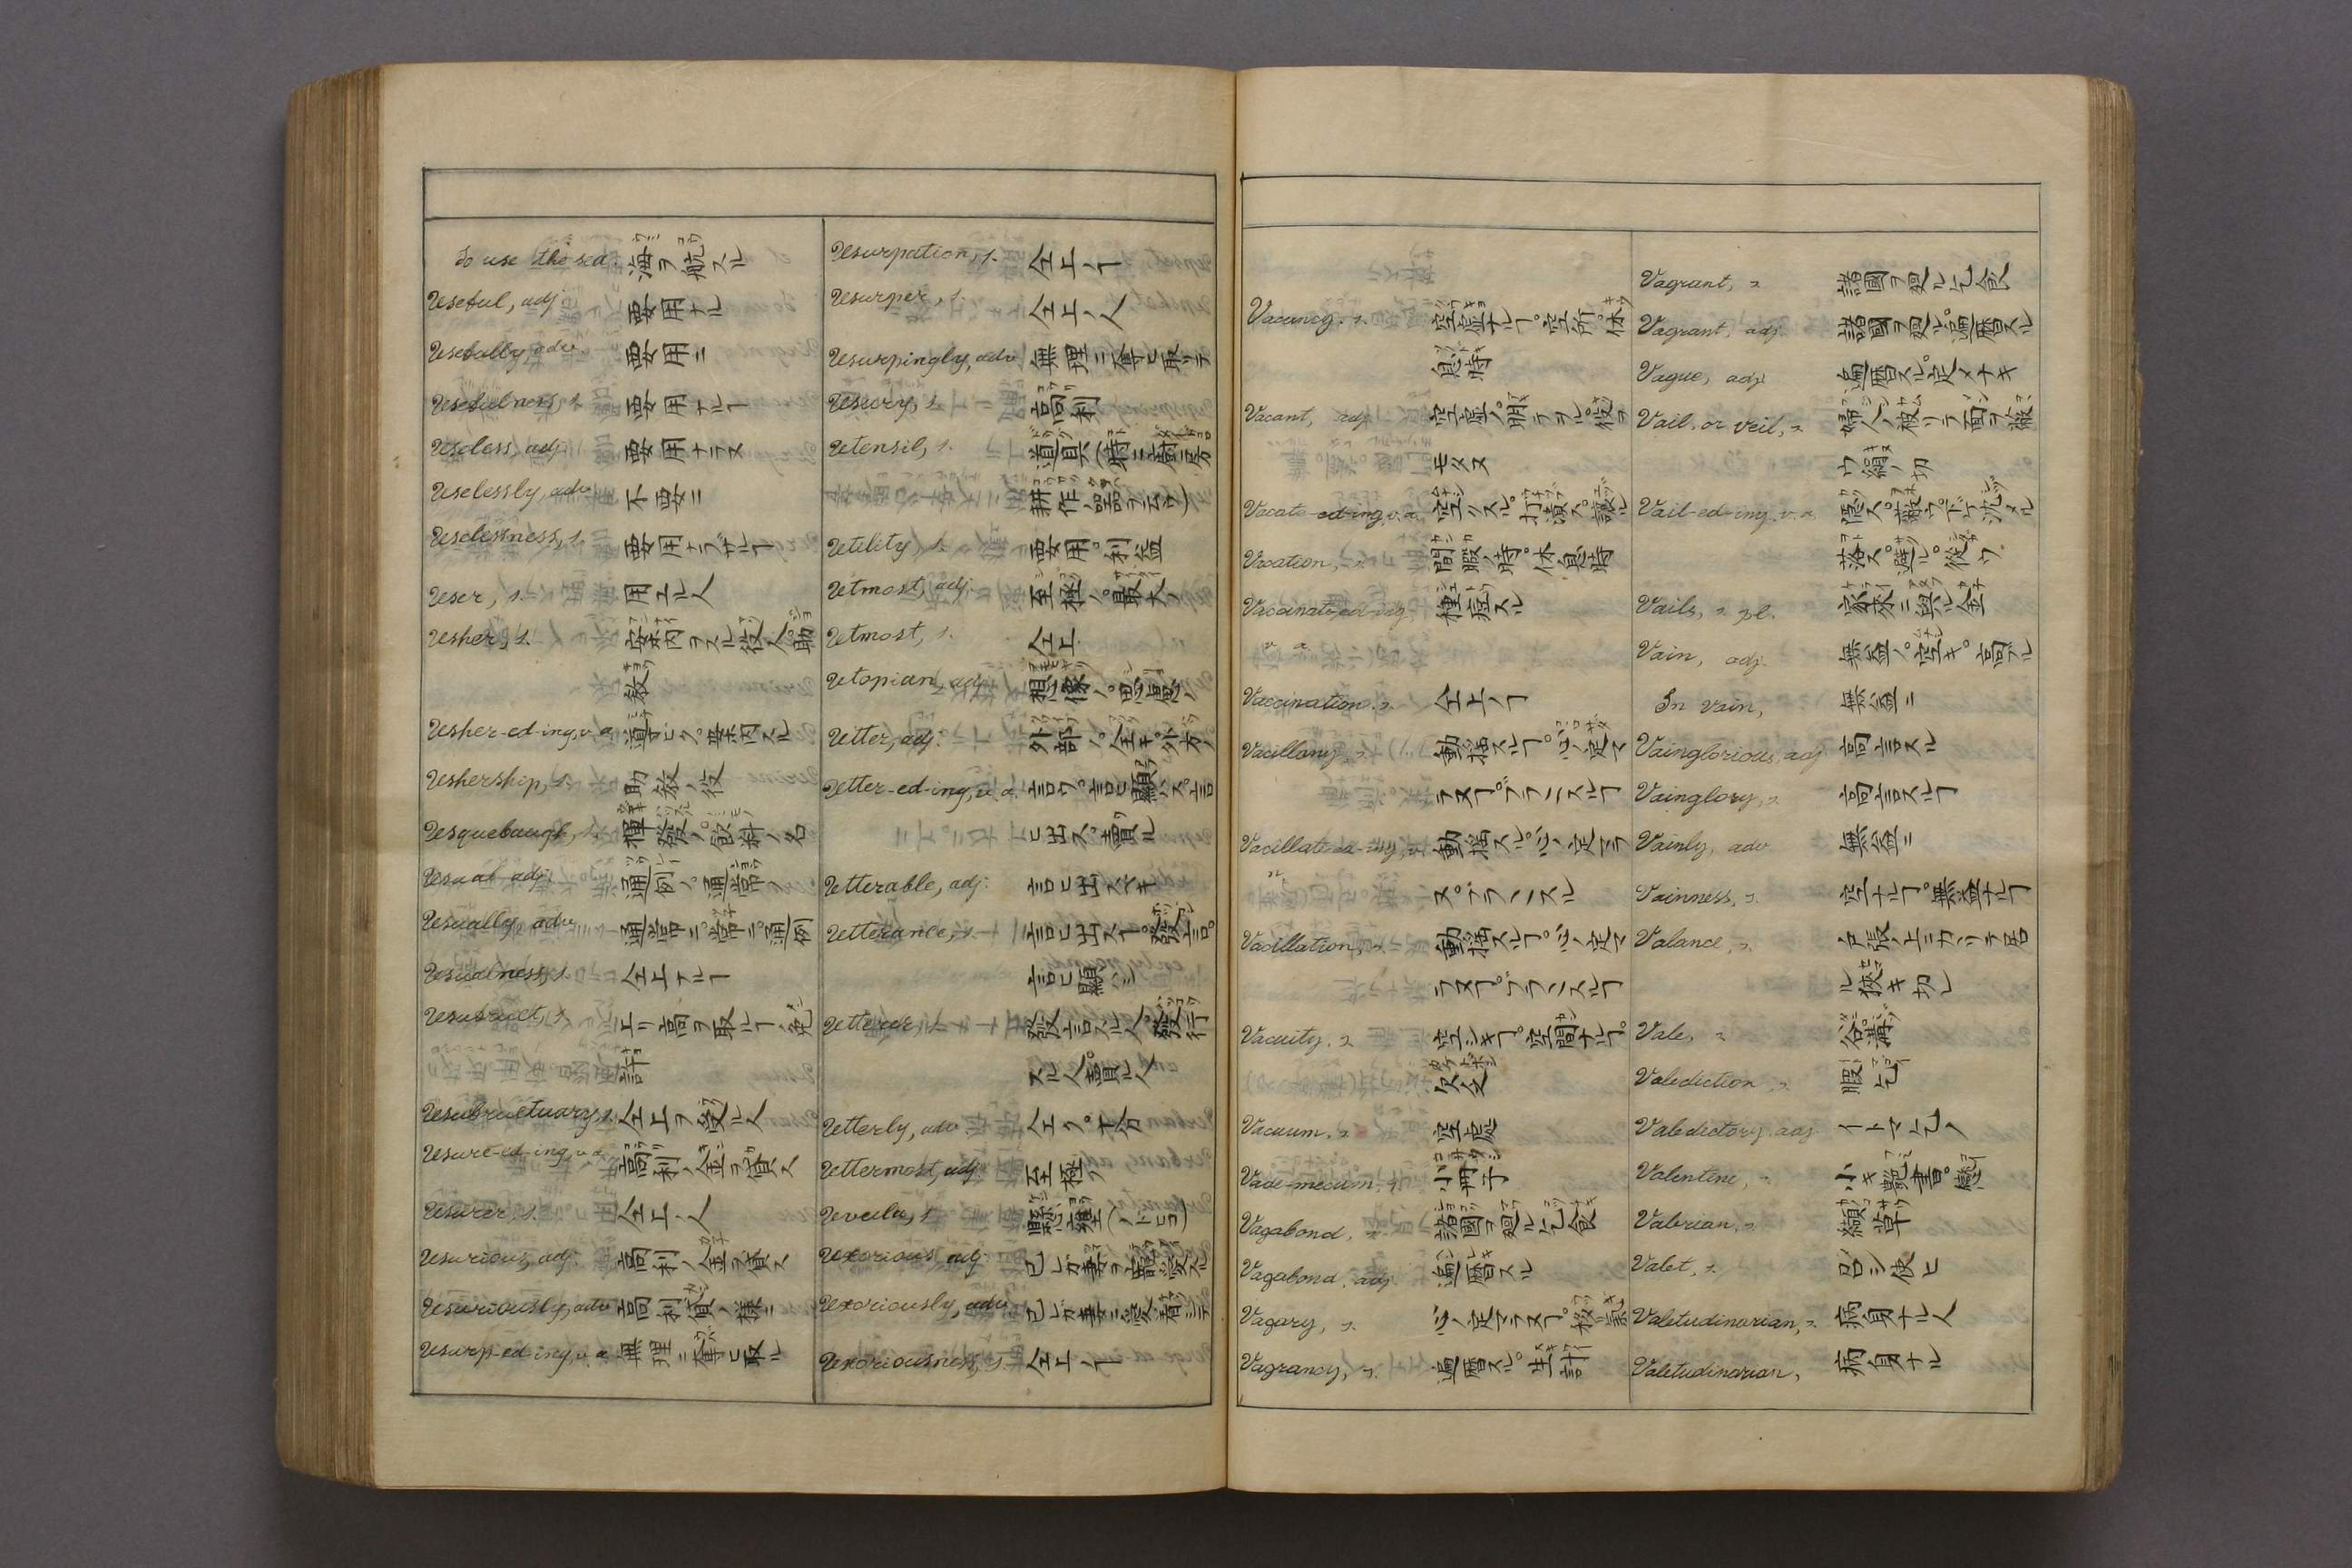 To use the sea. 海ヲ航スル
Useful, adj. 要用ナル
Usefully, adv. 要用ニ
Usefulness, s. 要用ナルヿ
Useless, adj. 要用ナラヌ
Uselessly, adv. 不要ニ
Uselessness, s. 要用ナラザルヿ
User, s. 用ユル人
Usher, s. 案内ヲスル役人。助
教
Usher-ed-ing, v. a. 導ビク。案内スル
Ushership, s. 助教ノ役
Usquebaugh, s. 揮發ノ飲料ノ名
Usual adj. 通例ノ。通常ノ
Usually adv. 通常ニ。常ニ。通例
Usualness, s. 仝上ナルヿ
Usufruct, s. 上リ高ヲ取ルヿ免
許
Usufructuary, s. 仝上ヲ受ル人
Usure-ed-ing, v. a. 高利ノ金ヲ貸ス
Usurer, s. 仝上ノ人
Usurious, adj. 高利ノ金ヲ貸ス
Usuriously, adv. 高利貸ノ様ニ
Usurp-ed-ing, v. a. 無理ニ奪ヒ取ル
Usurpation, s. 仝上ノヿ
Usurper, s. 仝上ノ人
Usurpingly, adv. 無理ニ奪ヒ取リテ
Usury, s. 高利
Utensil, s. 道具(特ニ厨房
耕作ノ器ヲ云フ)
Utility, s. 要用。利益
Utmost, adj. 至極ノ。最大ノ
Utmost, s. 仝上
Utopian, adj. 想像ノ。思慮ノ
Utter, adj. 外部ノ。全キ。外方ノ
Utter-ed-ing, v. a. 言フ。言ヒ顯ハス。言
ヒ出ス。賣ル
Utterable, adj. 言ヒ出スベキ
Utterance, s. 言ヒ出スヿ。發言。
言ヒ顯ハシ
Utterer, s. 發言スル人。發行
スル人。賣ル人
Utterly, adv. 仝ク。十分
Uttermost, adj. 至極ノ
Uvula, s. 懸壅(ノドヒコ)
Uxorious, adj. 己レガ妻ヲ溺愛スル
Uxoriously, adv. 己レガ妻ニ愛着シテ
Uxoriousness, s. 仝上ノヿ
Vacancy, s. 空虚ナルヿ。空所。休
息時
Vacant, adj. 空虚ノ。明テヲル。
モタヌ
Vacate-ed-ing, v. a. 空クスル。打潰ス。譲ル
Vacation, s. 間暇ノ時。休息時
Vaccinate-ed-ing 種痘スル
v. a.
Vaccination. s. 仝上ノヿ
Vacillany, s. 動揺スルヿ。心ノ定マ
ラヌヿ。ブラ〵スルヿ
Vacillate-ed-ing, v. 動揺スル。心ノ定マラ
n. ヌ。ブラ〵スル
Vacillation, s. 動揺スルヿ。心ノ定マ
ラヌヿ。ブラ〵スルヿ
Vacuity, s. 空シキヿ。空間ナルヿ。
欠乏
Vacuum, s. 空處
Vade-mecum, s. 小冊子
Vagabond, s. 諸國ヲ廻ル乞食
Vagabond, adj. 遍暦スル
Vagary, s. 心ノ定マラヌヿ。
Vagrancy, s. 遍暦スル。生計
Vagrant, s. 諸國ヲ廻ル乞食
Vagrant, adj. 諸國ヲ廻ル。遍暦スル
Vague, adj. 遍暦スル。定メナキ
Vail, or veil, s. 婦人ノ被リテ面ヲ蔽
ウ絹ノ切
Vail-ed-ing, v. a. 隱ス。蔽フ。下ゲ沈メル
落ス。避ル。從ウ
Vails, s. pl. 家來ニ與ル金
Vain, adj. 無益ノ。空キ。高ブル
In vain, 無益ニ
Vainglorious, adj. 高言スル
Vainglory, s. 高言スルヿ
Vainly, adv. 無益ニ
Vainness, s. 空ナルヿ。無益ナルヿ
Valance, s. 戸張ノ上ニカヽリテ居
ル狹キ切レ
Vale, s. 谷。溝
Valediction, s. 暇乞
Valedictory, adj. イトマ乞ノ
Valentine, s. 小キ艶書。戀
Valerian, s. 纈草
Valet, s. 召シ使ヒ
Valetudinarian, s. 病身ナル人
Valetudinarian, 病身ナル